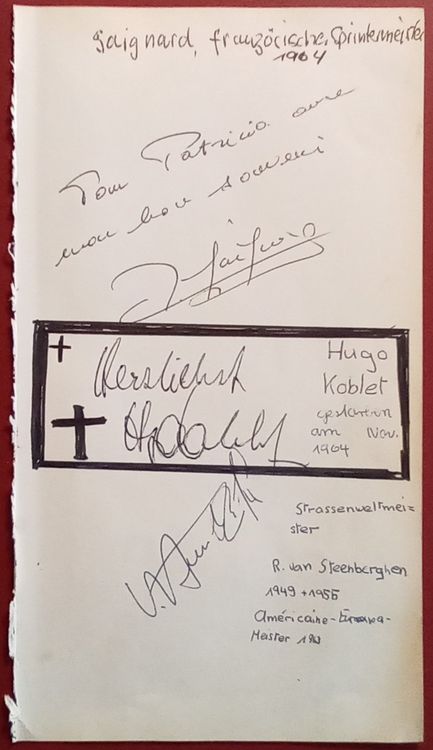 Gaignard, französische Sprintermeister
1964
Pour Patricia avec
mon bon souvenir
Herzlichst
Hugo
Koblet
gestorben
am Nov.
1964
Strassenweltmei=
ster
R. van Steenberghen
1949 + 1956
Américaine-Europa-
Meister